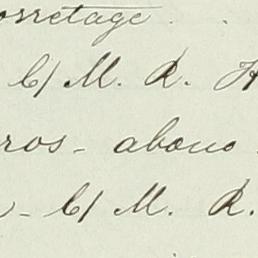 orretage . .
C/ M. R. H
ros - abono
- C/ M. R.